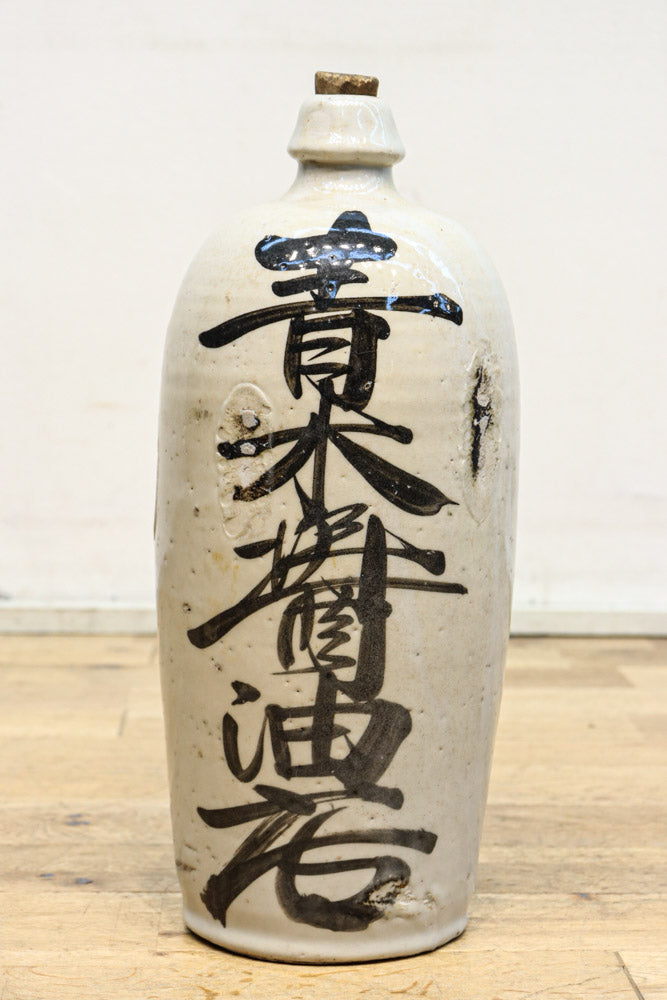 青木醤油店